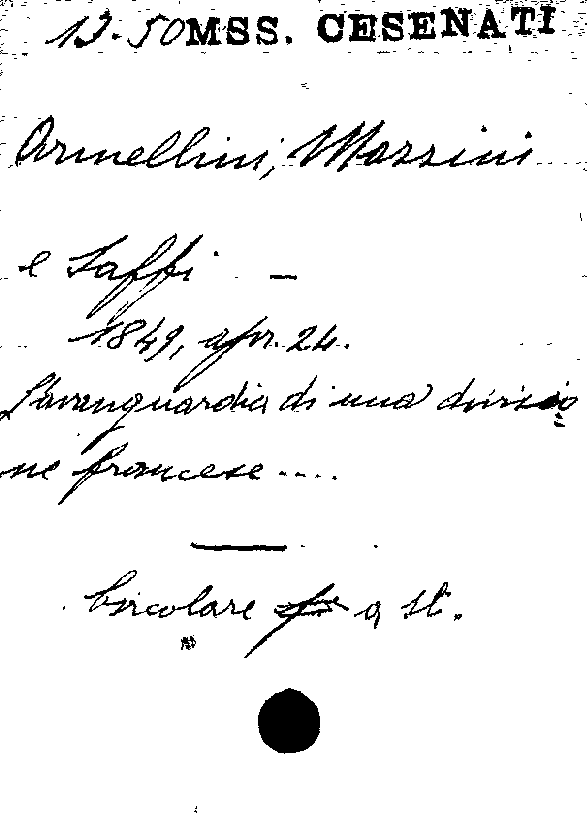 13.50 MSS. CESENATI
Armellini, Mazzini
e Saffi —
1849, apr. 24.
L'avanguardia di una divisio=
ne francese ....
Circolare a st.